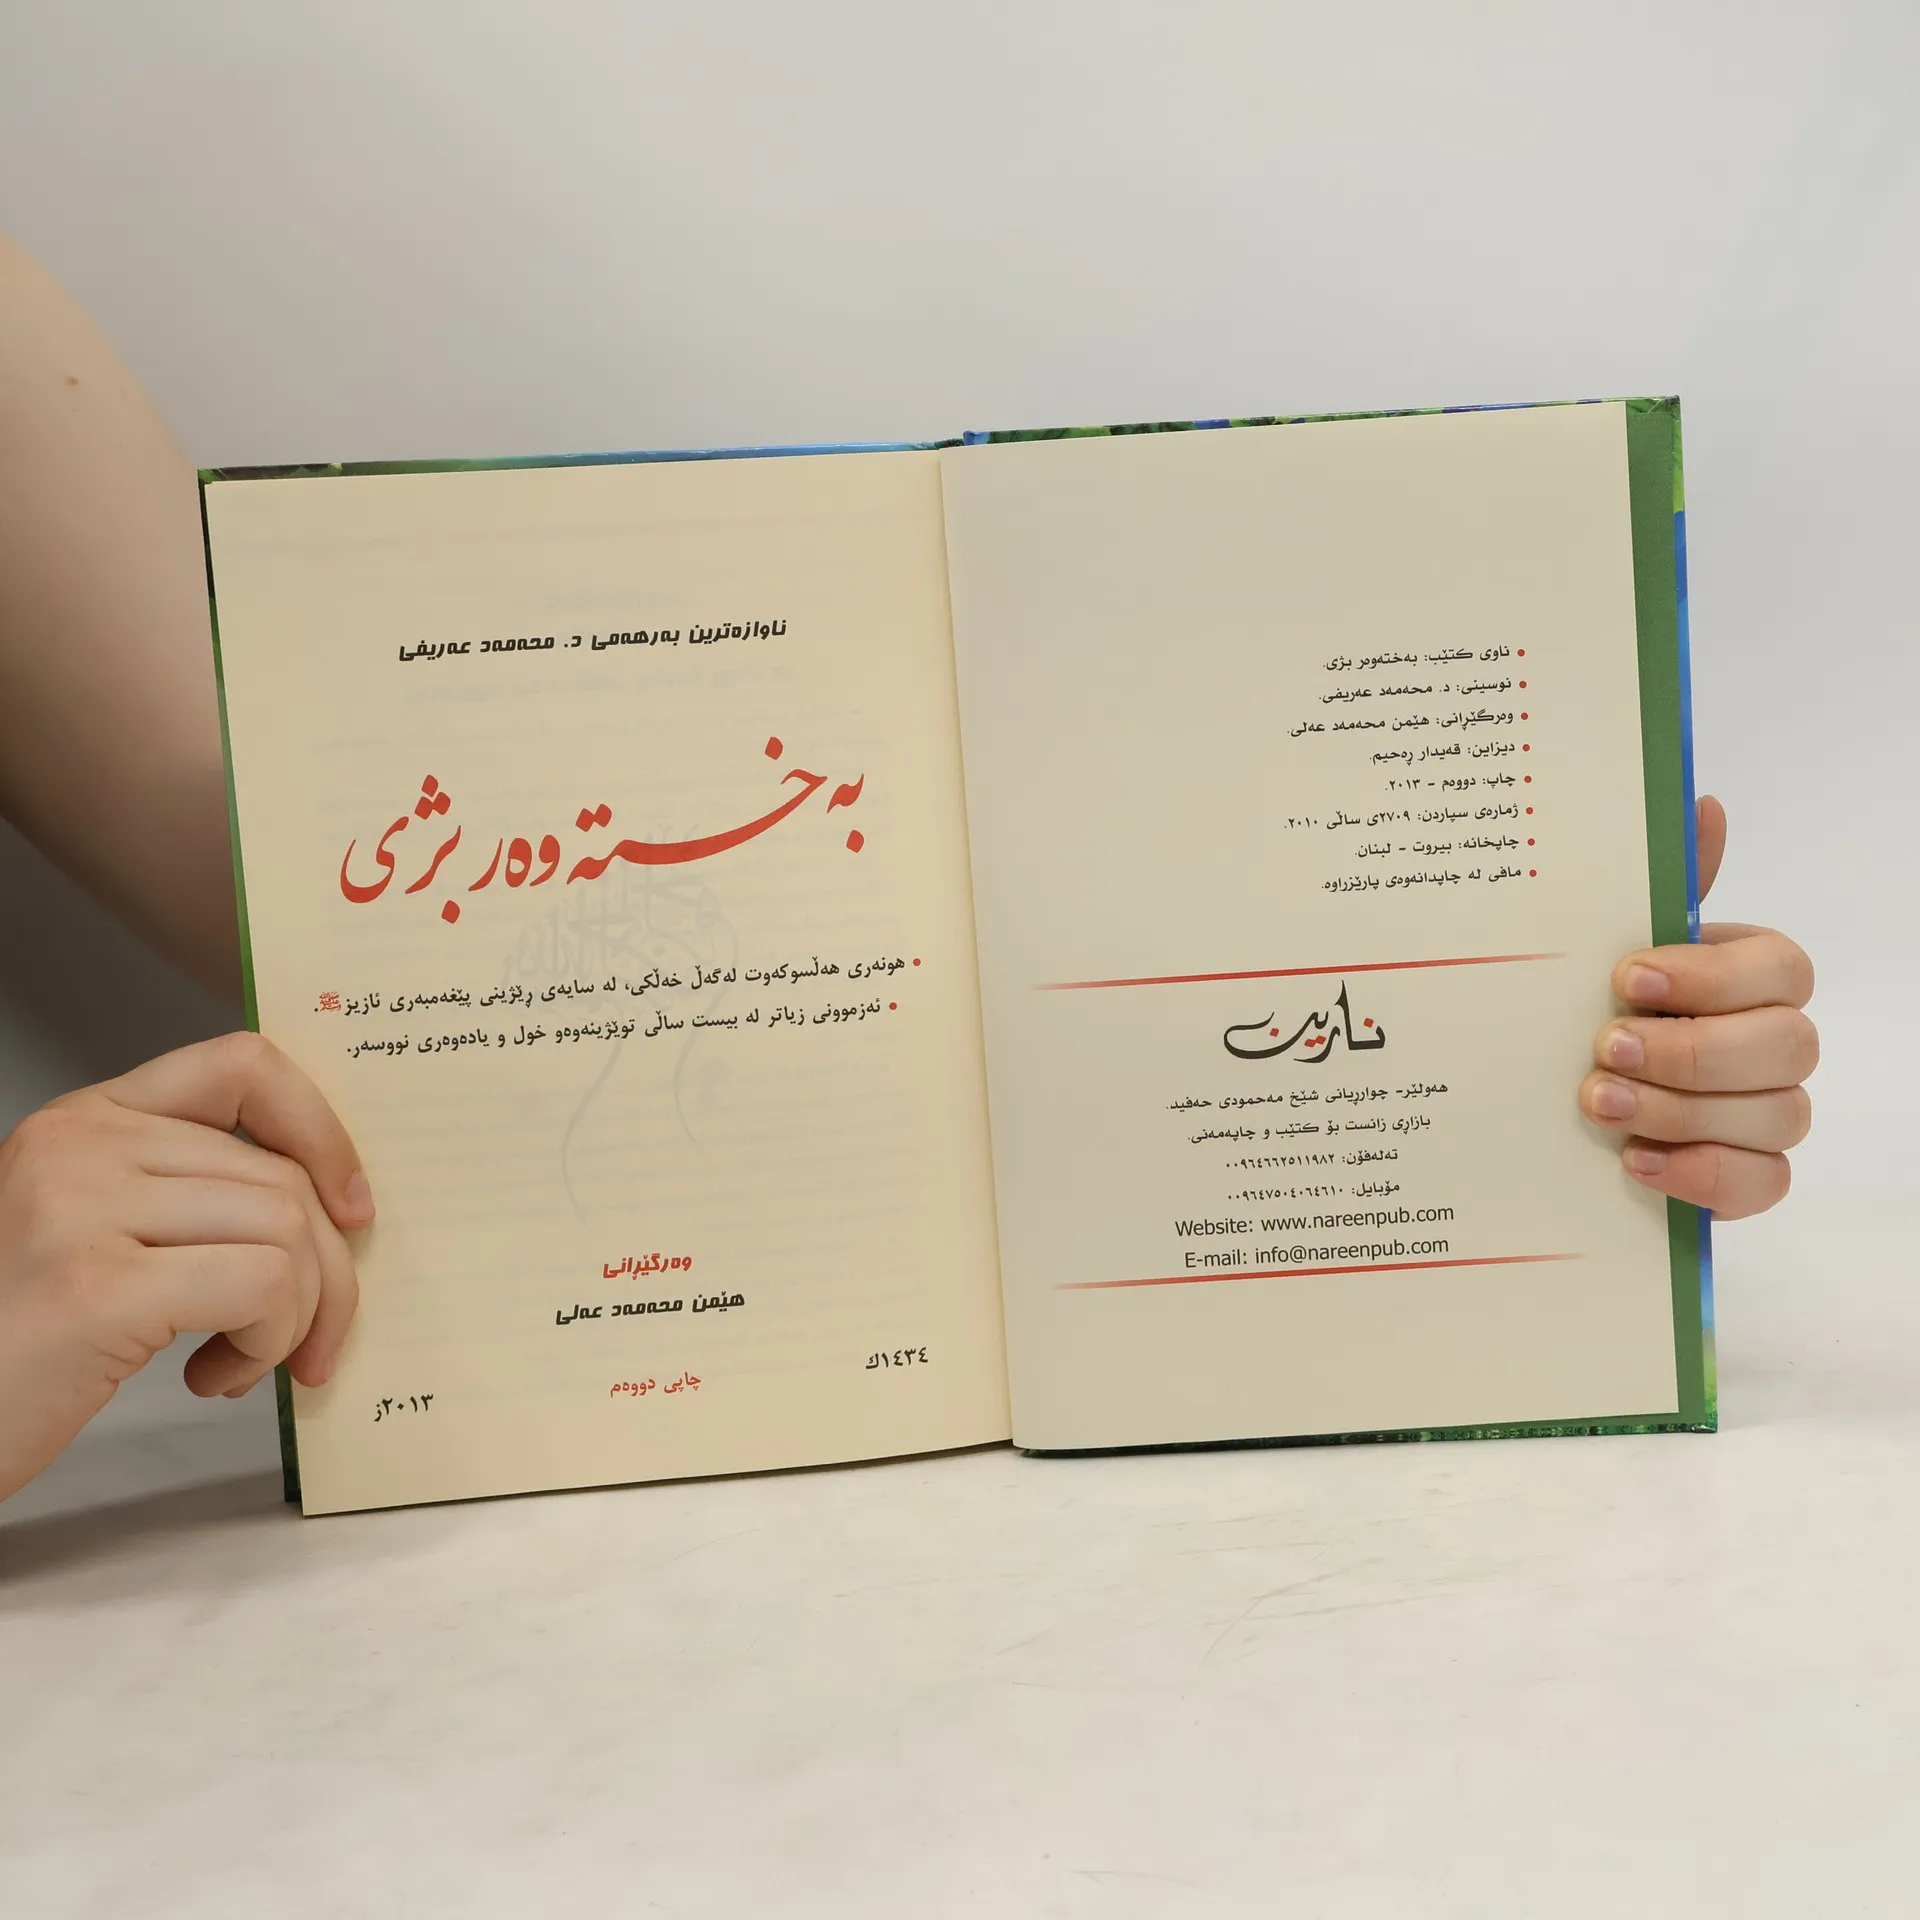 ناوی کتێب: بەختەوەر بژی.
نوسینی: د. محەمەد عەریفی.
وەرگێڕانی: هێمن محەمەد عەلی.
دیزاین: قەیدار ڕەحیم.
چاپ: دووەم - ٢٠١٣.
ژمارەی سپاردن: ٢٧٠٩ی ساڵی ٢٠١٠.
چاپخانە: بیروت - لبنان.
مافی لە چاپدانەوەی پارێزراوە.
نارین
هەولێر- چوارڕیانی شێخ مەحمودی حەفید.
بازاڕی زانست بۆ کتێب و چاپەمەنی.
تەلەفۆن: ٠٠٩٦٤٦٦٢٥١١٩٨٢
مۆبایل: ٠٠٩٦٤٧٥٠٤٠٦٤٦١٠
Website: www.nareenpub.com
E-mail: info@nareenpub.com
ناوازەترین بەرهەمی د. محەمەد عەریفی
بەختەوەر بژی
هونەری هەڵسوکەوت لەگەڵ خەڵکی، لە سایەی ڕێژینی پێغەمبەری ئازیز ﷺ.
ئەزموونی زیاتر لە بیست ساڵی توێژینەوەو خول و یادەوەری نووسەر.
وەرگێڕانی
هێمن محەمەد عەلی
١٤٣٤ك
چاپی دووەم
٢٠١٣ز